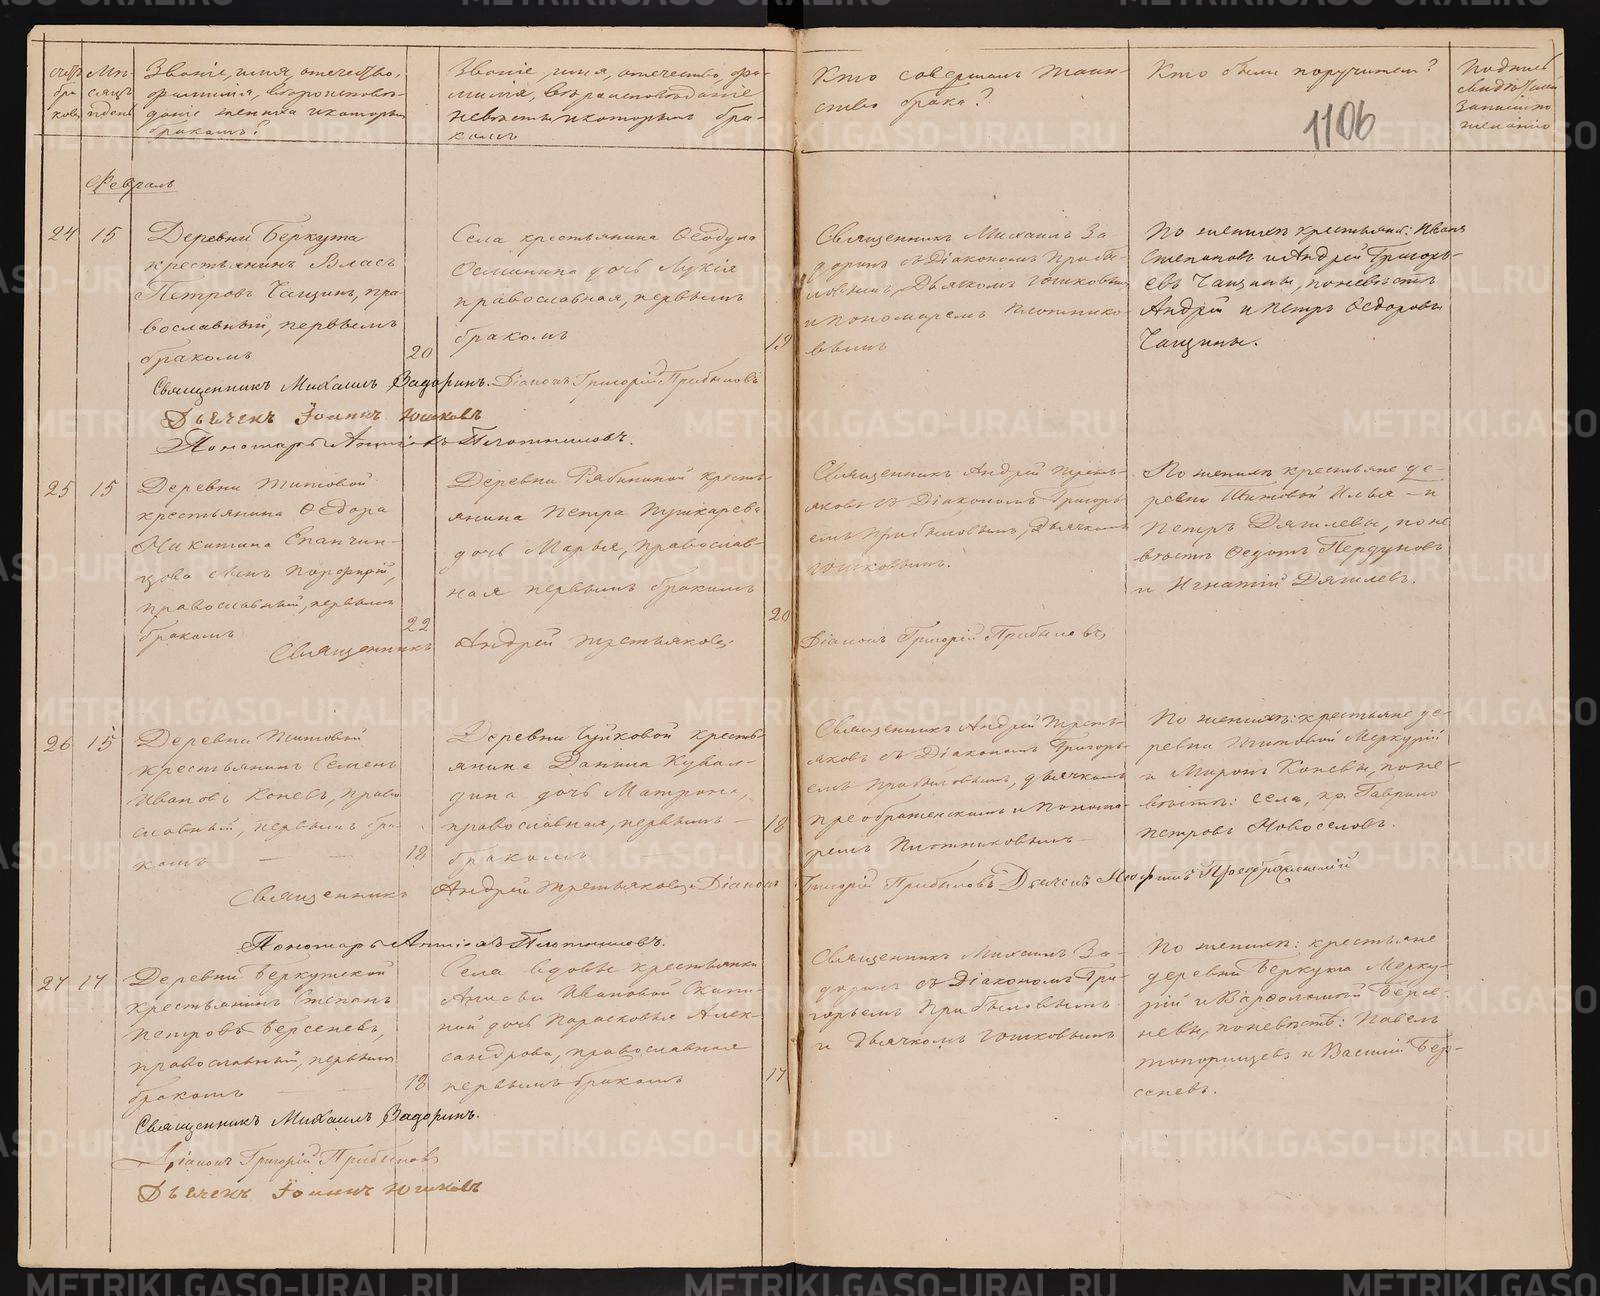 счетъ
бра
ковъ
Мѣ-
сяцъ
и день
Званіе, имя, отечество,
фамилія, вѣроисповѣ-
даніе жениха и которымъ
бракомъ?
Званіе, имя, отечество, фа-
милія, вѣроисповѣданіе
невѣсты и которымъ бра-
комъ
Кто совершалъ таин-
ство брака?
Кто были поручители?
Подпись
свидѣтелей
записи по
желанію
1106
Февраль
24
15
Деревни Беркута
крестьянинъ Власъ
Петровъ Чащинъ, пра-
вославный, первымъ
бракомъ
20
Села крестьянина Ѳеодула
дочь Лукія
православная, первымъ
бракомъ
19
Священникъ Михаилъ За-
доринъ съ Діакономъ Прибы-
ловымъ, Дьячкомъ Юшковымъ
и пономаремъ Плотнико-
вымъ
По женихѣ крестьяне: Иванъ
Степановъ и Андрей Григорь-
евъ Чащины, по невѣстѣ
Андрей и Петръ Ѳедоровы
Чащины.
Священникъ Михаилъ Задоринъ. Діаконъ Григорій Прибыловъ
Дьячекъ Іоаннъ Юшковъ
Пономарь Плотниковъ.
25
15
Деревни Титовой
крестьянина Ѳедора
Никитина Епанчин-
цова сынъ Порфирій,
православный, первымъ
бракомъ
22
Деревни Рябининой кресть-
янина Петра Пушкарева
дочь Марья, православ-
ная первымъ бракомъ
20
Священникъ Андрей Треть-
яковъ съ Діакономъ Григорь-
емъ Прибыловымъ, Дьячкомъ
Юшковымъ.
По женихѣ крестьяне де-
ревни Титовой Илья и
Петръ Дягилевы, по не-
вѣстѣ Ѳедотъ Пердуновъ
и Игнатій Дягилевъ.
Священникъ Андрей Третьяковъ
Діаконъ Григорій Прибыловъ
26
15
Деревни Титовой
крестьянинъ Семенъ
Ивановъ Коневъ, право-
славный, первымъ бра-
комъ
18
Деревни Чуйковой кресть-
янина Данила Кувал-
дина дочь Матрона,
православная, первымъ
бракомъ
18
Священникъ Андрей Треть-
яковъ съ Діакономъ Григорь-
емъ Прибыловымъ, дьячкомъ
Преображенскимъ и Понома-
ремъ Плотниковымъ
По женихѣ: крестьяне де-
ревни Титовой Меркурій
и Миронъ Коневы, по не-
вѣстѣ: села, кр. Гаврило
Петровъ Новоселовъ.
Священникъ Андрей Третьяковъ Діаконъ Григорій Прибыловъ Дьячекъ Преображенскій
Пономарь Плотниковъ.
27
17
Деревни Беркутской
крестьянинъ Степанъ
Петровъ Берсеневъ,
православный, первымъ
бракомъ
18
Села вдовы крестьянки
Анисьи Ивановой Скипи-
ной дочь Парасковья Алек-
сандрова, православная
первымъ бракомъ
17
Священникъ Михаилъ За-
доринъ съ Діакономъ Гри-
горьемъ Прибыловымъ
и Дьячкомъ Юшковымъ
По женихѣ: крестьяне
деревни Беркута Мерку-
рій и Варѳоломей Берсе-
невы, по невѣстѣ: Павелъ
Топорищевъ и Василій Бер-
сеневъ.
Священникъ Михаилъ Задоринъ.
Діаконъ Григорій Прибыловъ
Дьячекъ Іоаннъ Юшковъ
METRIKI.GASO-URAL.RU